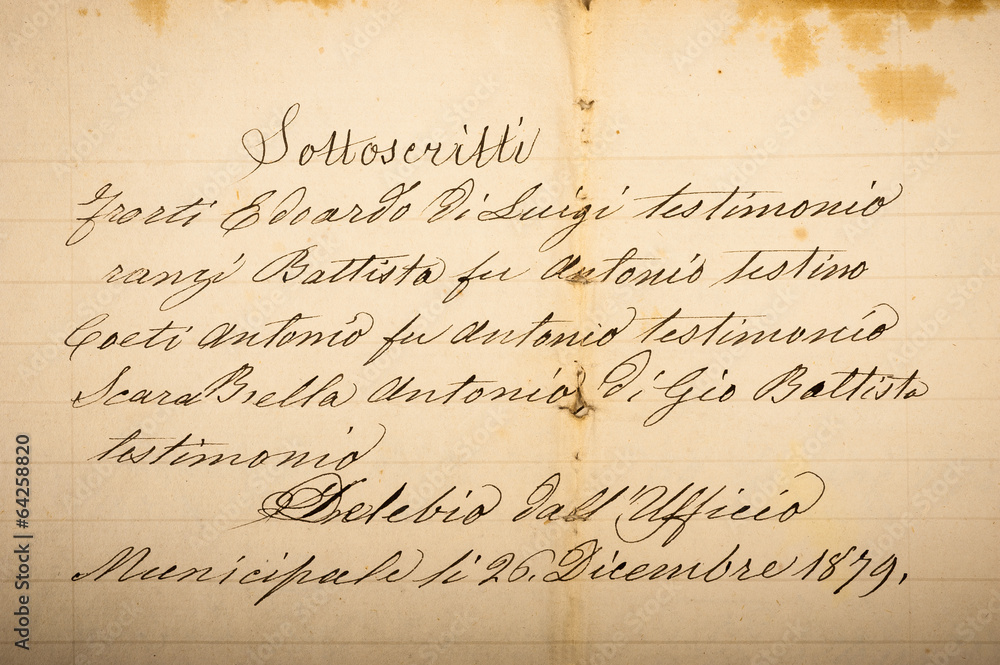 Sottoscritti
Edoardo di Luigi testimonio
rangi Battista fu Antonio testimo
Antonio fu Antonio testimonio
ScaraBrella Antonio di Gio Battista
testimonio
Delebio dall'Ufficio
Municipale li 26. Dicembre 1879.
Adobe Stock | #64258820